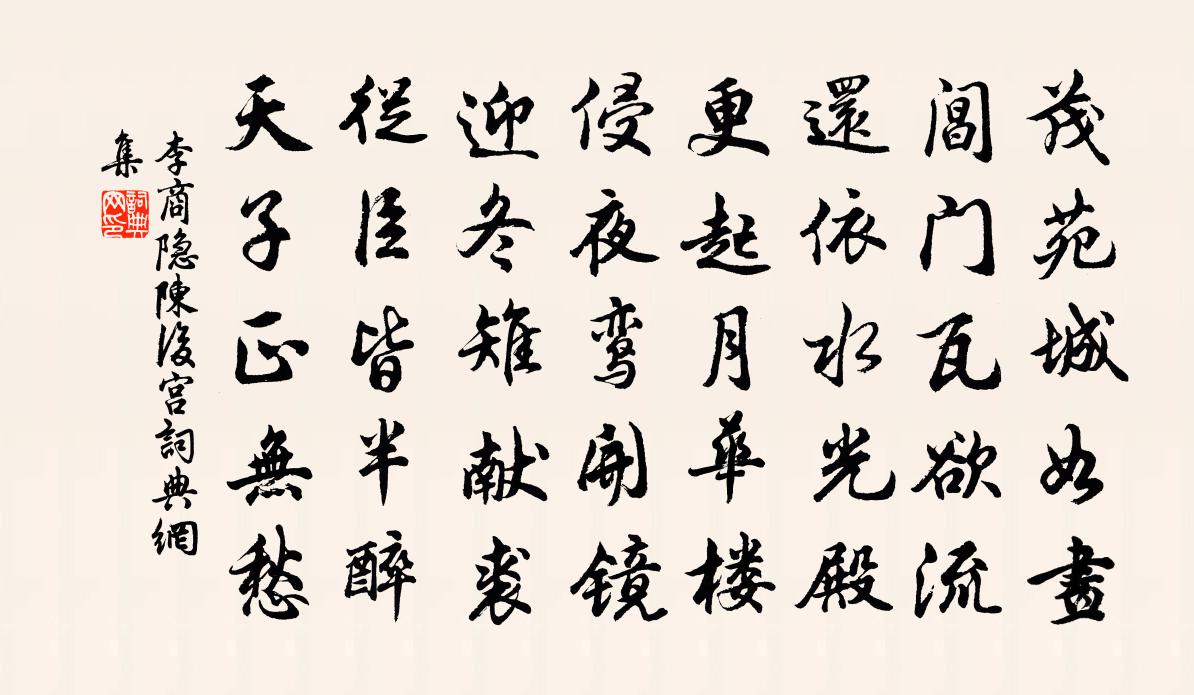 茂苑城如畫
閶门瓦欲流
還依水光殿
更起月華楼
侵夜鸾開镜
迎冬雉献裘
從臣皆半醉
天子正無愁
李商隐陳後宫詞典網
集
詞典网印